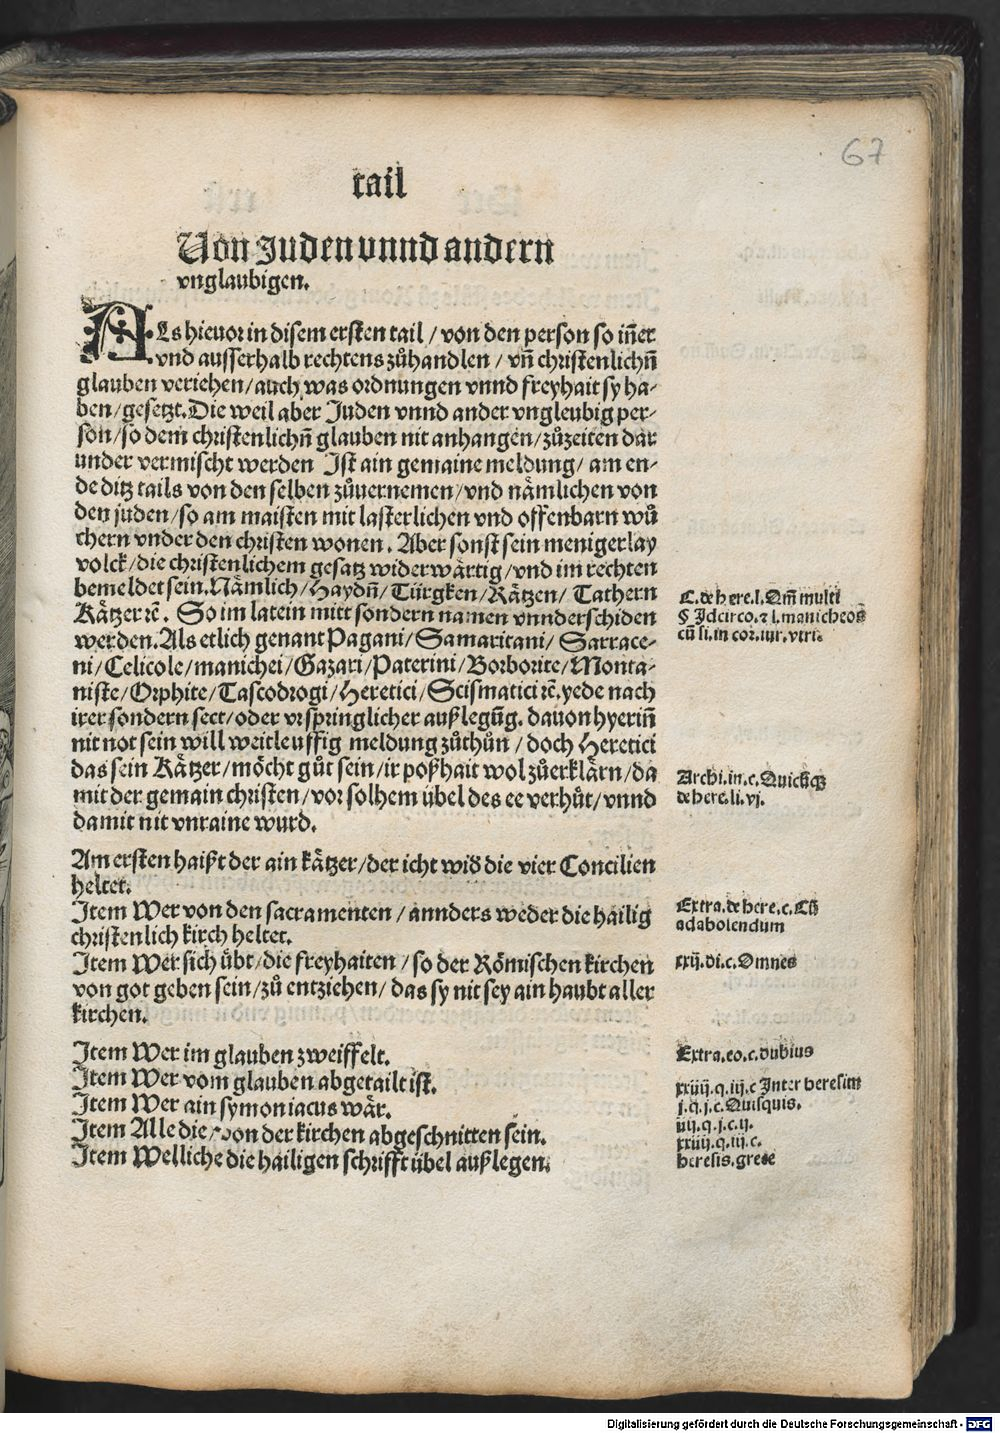 67
tail
Von Juden vnnd andern
vnglaubigen.
ALs hieuor in disem ersten tail / von den person so iñer
vnd ausserhalb rechtens zůhandlen / vñ christenlichñ
glauben veriehen / auch was ordnungen vnnd freyhait sy ha-
ben / gesetzt. Die weil aber Juden vnnd ander vngleubig per-
son / so dem christenlichñ glauben nit anhangen / zůzeiten dar
under vermischt werden Ist ain gemaine meldung / am en-
de ditz tails von den selben zůuernemen / vnd nämlichen von
den juden / so am maisten mit lasterlichen vnd offenbarn wů
chern vnder den christen wonen. Aber sonst sein menigerlay
volck / die christenlichem gesatz widerwärtig / vnd im rechten
bemeldet sein. Nämlich / Haydñ / Türgken / Rätzen / Tathern
Kätzer ꝛc̃. So im latein mitt sondern namen vnnderschiden
werden. Als etlich genant Pagani / Samaritani / Sarrace-
ni / Celicole / manichei / Gazari / Paterini / Borborite / Monta-
niste / Orphite / Tascodrogi / Heretici / Scismatici ꝛc̃. yede nach
irer sondern sect / oder vrspringlicher außlegũg. dauon hyeriñ
nit not sein will weitleuffig meldung zůthůn / doch Heretici
das sein Kätzer / möcht gůt sein / ir poßhait wol zůerklärn / da
mit der gemain christen / vor solhem übel des ee verhůt / vnnd
damit nit vnraine wurd.
Am ersten haißt der ain kätzer / der icht wid̃ die vier Concilien
heltet.
Item Wer von den sacramenten / annders weder die hailig
christenlich kirch heltet.
Item Wer sich übt / die freyhaiten / so der Römischen kirchen
von got geben sein / zů entziehen / das sy nit sey ain haubt aller
kirchen.
Item Wer im glauben zweiffelt.
Item Wer vom glauben abgetailt ist.
Item Wer ain symoniacus wär.
Item Alle die / von der kirchen abgeschnitten sein.
Item Welliche die hailigen schrifft übel außlegen.
C. de here. l. Qm̃ multi
§ Jdcirco. ⁊ l. manicheos
cũ li. in cor. iur. vtri.
Archi. in. c. Quicũqꝫ
de here. li. vj.
Extra. de here. c. Cũ
ad abolendum
xxij. di. c. Omnes
Extra. eo. c. dubius
xxiiij. q. iij. c Inter heresim
j. q. j. c. Quisquis.
iiij. q. j. c. ij.
xxiiij. q. iij. c.
heresis. grece
Digitalisierung gefördert durch die Deutsche Forschungsgemeinschaft - DFG